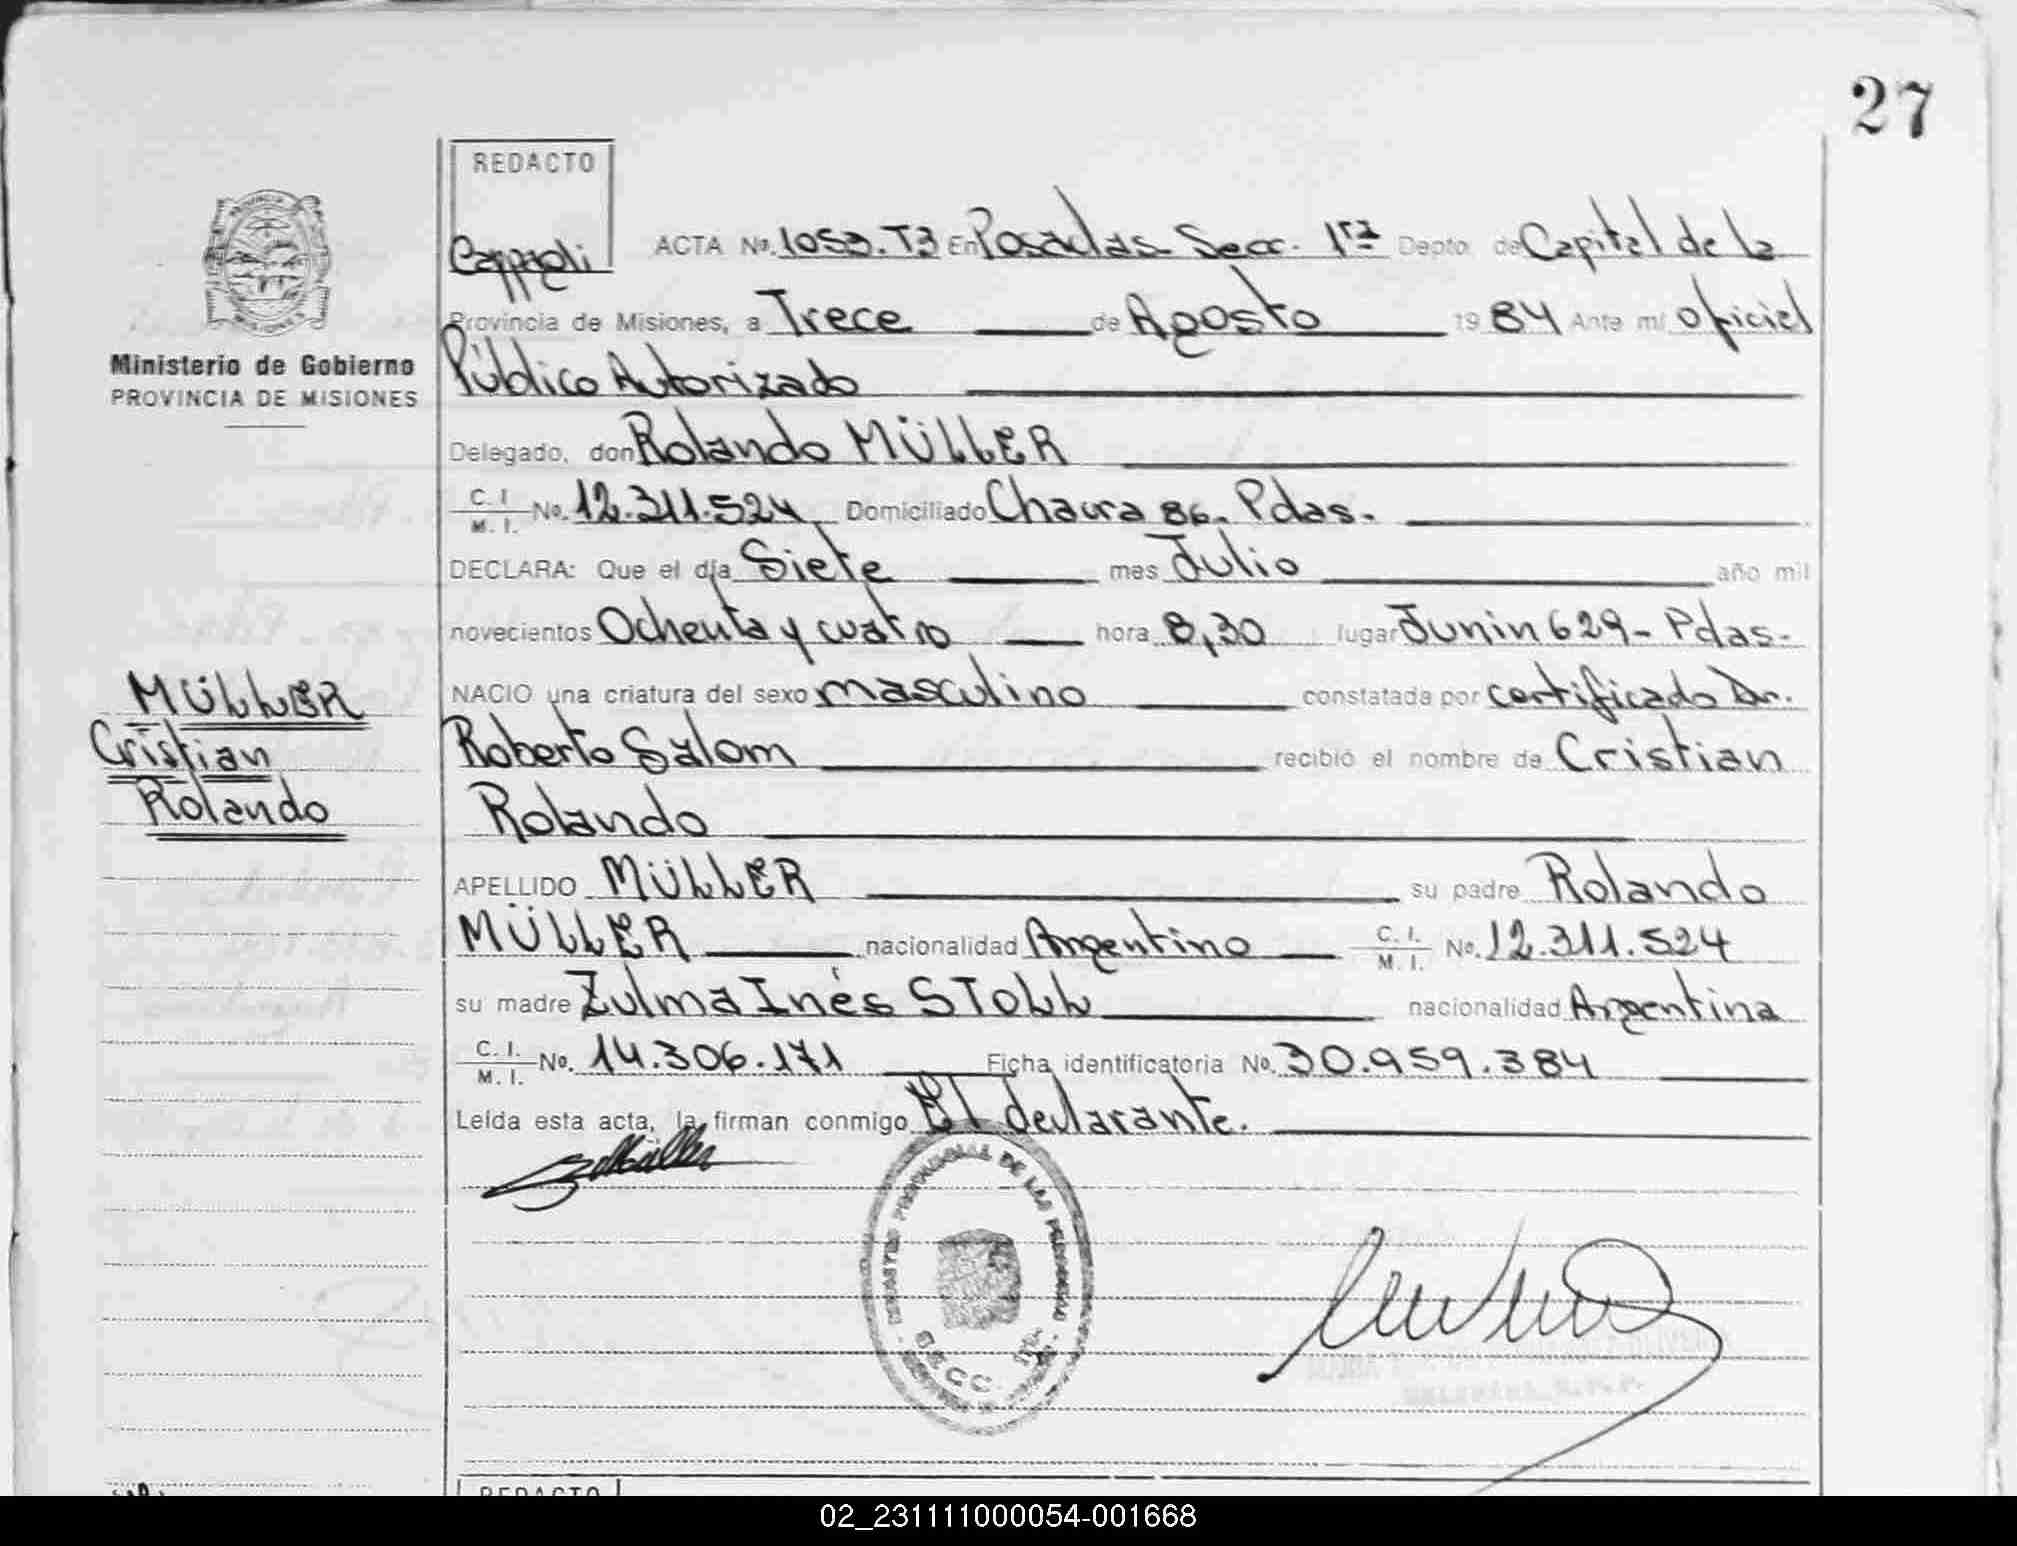 27
REDACTO
Cappagli
ACTA No. 1053.T3 En Posadas Secc. 1ra Depto. de Capital de la
Provincia de Misiones, a Trece de Agosto 1984 Ante mí oficial
Ministerio de Gobierno
PROVINCIA DE MISIONES
Público Autorizado
Delegado, don Rolando MÜLLER
C. I. M. I. No. 12.311.524 Domiciliado Chaura 86. Pdas.
DECLARA: Que el día Siete mes Julio año mil
novecientos Ochenta y cuatro hora 8,30 lugar Junin 629 - Pdas.
MÜLLER
Cristian
Rolando
NACIO una criatura del sexo masculino constatada por certificado Dr.
Roberto Salom recibió el nombre de Cristian
Rolando
APELLIDO MÜLLER su padre Rolando
MÜLLER nacionalidad Argentino C. I. M. I. No. 12.311.524
su madre Zulma Inés STOLL nacionalidad Argentina
C. I. M. I. No. 14.306.171 Ficha identificatoria No. 30.959.384
Leída esta acta, la firman conmigo El declarante.
PROVINCIAL DE LAS PERSONAS
SECC. 1ra.
REDACTO
02_231111000054-001668